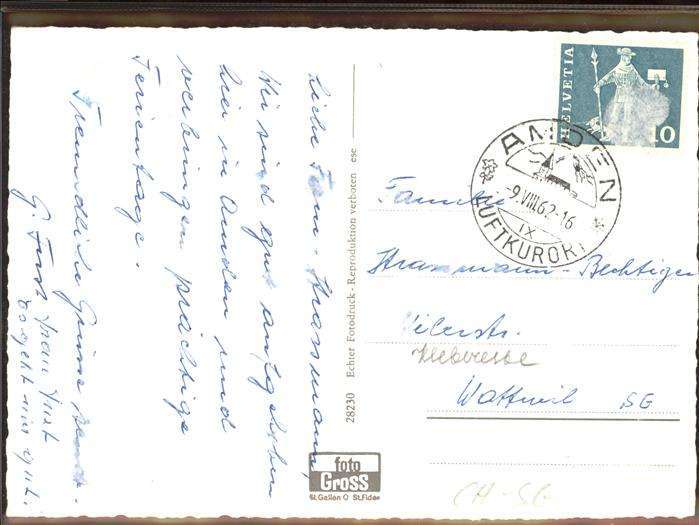 Liebe Fam. Strassmann,
Wir sind gut aufgehoben
hier in Amden und
verbringen prächtige
Ferientage.
Freundliche Grüsse
Es geht mir gut.
28230 Echter Fotodruck - Reproduktion verboten ese
foto
Gross
St.Gallen O St.Fiden
HELVETIA
10
AMDEN
-9.VIII.62-16
IX
LUFTKURORT
Familie
Strassmann-Bechtiger
Wattwil SG
CH-SG